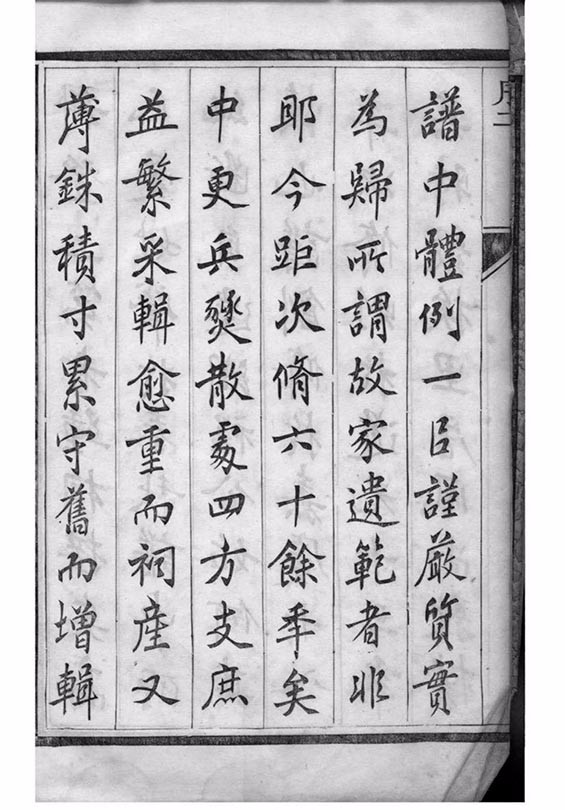 序二
譜中體例一㠯謹嚴質實
為歸所謂故家遺範者非
耶今距次脩六十餘季矣
中更兵燹散處四方支庶
益繁采輯愈重而祠產又
薄銖積寸累守舊而增輯